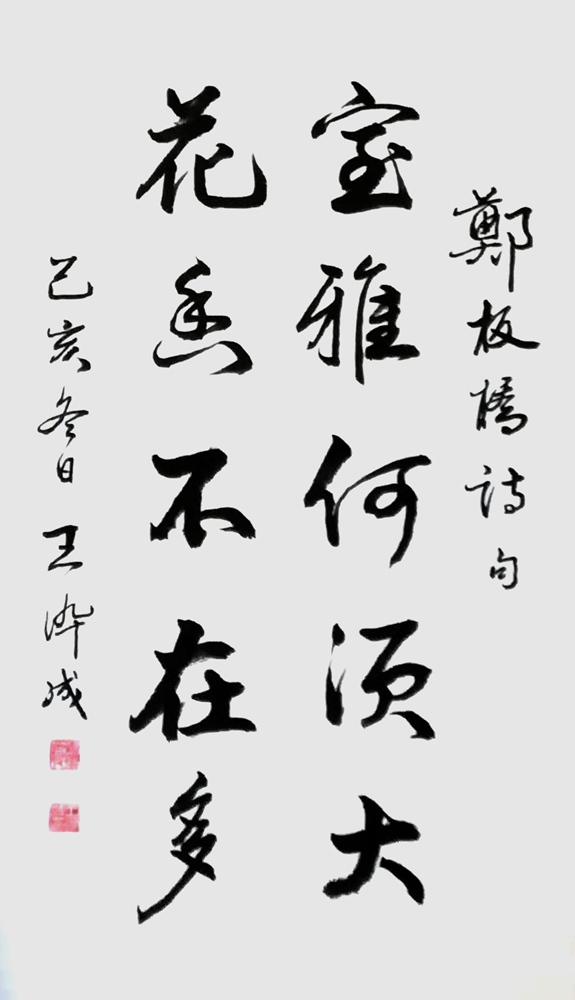 鄭板橋詩句
室雅何須大
花香不在多
己亥冬日 王